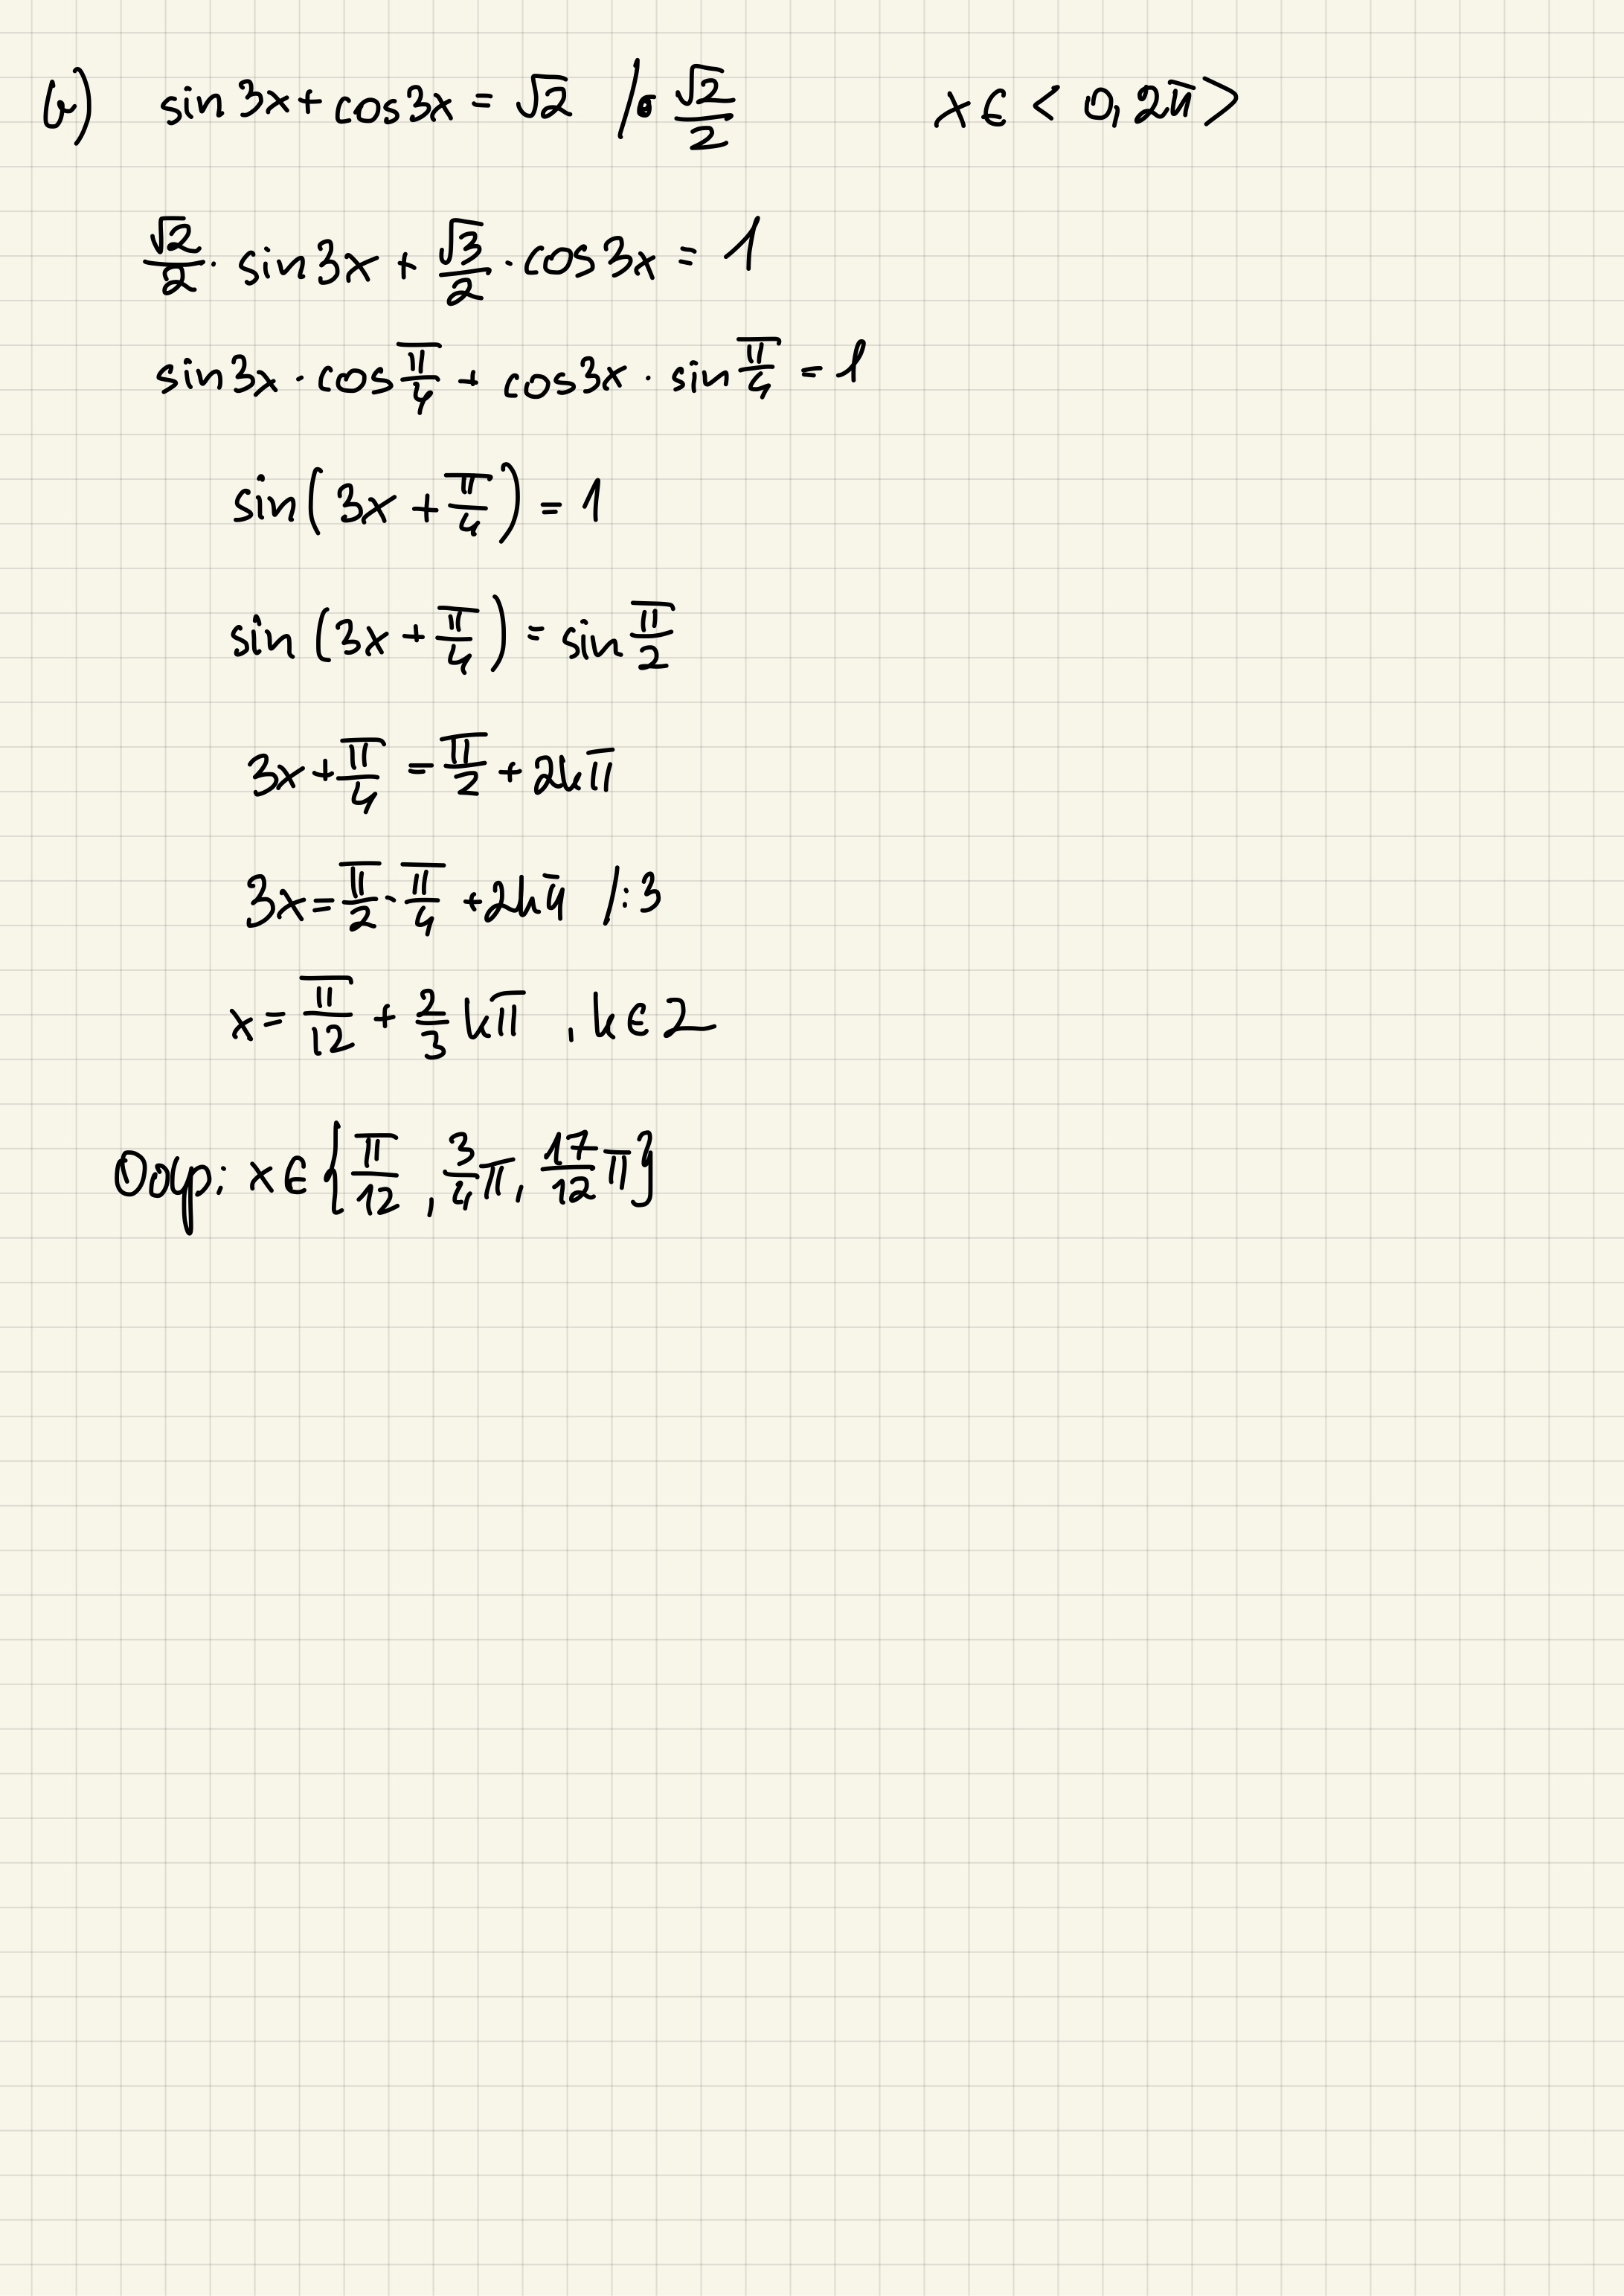 b) sin 3x + cos 3x = √2 / · √2/2 x ∈ < 0, 2π >
√2/2 · sin 3x + √3/2 · cos 3x = 1
sin 3x · cos π/4 + cos 3x · sin π/4 = 1
sin ( 3x + π/4 ) = 1
sin ( 3x + π/4 ) = sin π/2
3x + π/4 = π/2 + 2kπ
3x = π/2 - π/4 + 2kπ / : 3
x = π/12 + 2/3 kπ , k ∈ Z
Odp: x ∈ { π/12 , 3/4 π, 17/12 π }